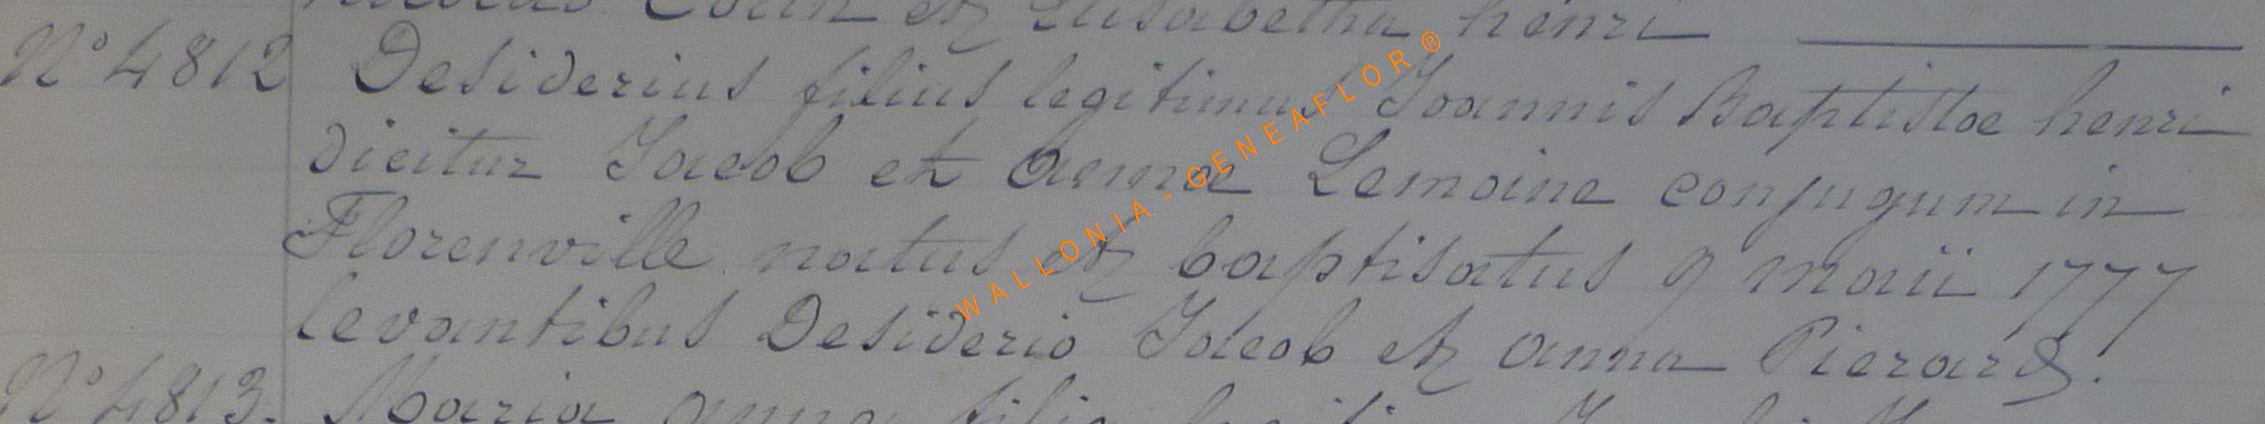 Nicolas Colin et Elisabetha henri
N° 4812 Desiderius filius legitimus Joannis Baptistae henri
dicitur Jacob et anna Lemoine conjugum in
Florenville natus et baptisatus 9 maii 1777
levantibus Desiderio Jacob et anna Pierard.
N° 4813. Maria anna filia
WALLONIA - GENEAFLOR ®